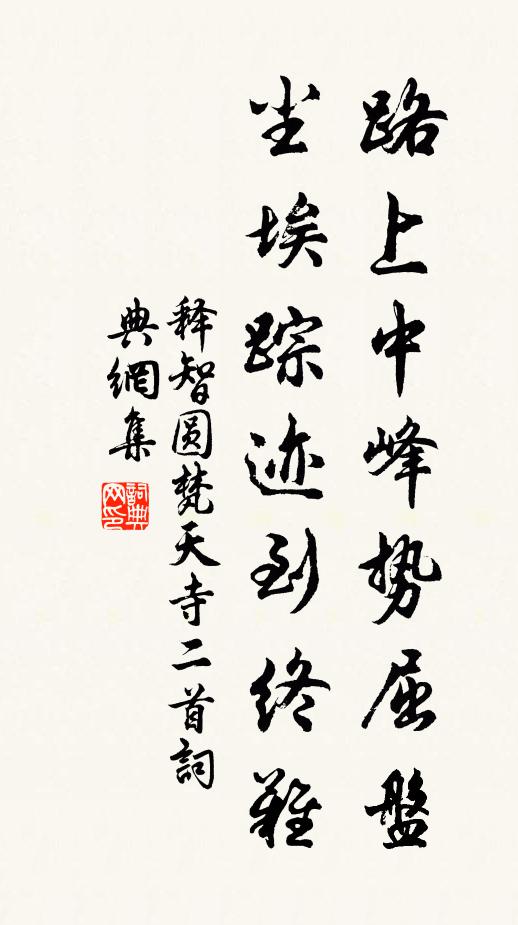 路上中峰势屈盤
坐埃踪迹到终难
释智圆梵天寺二首詞
典網集
詞典网印